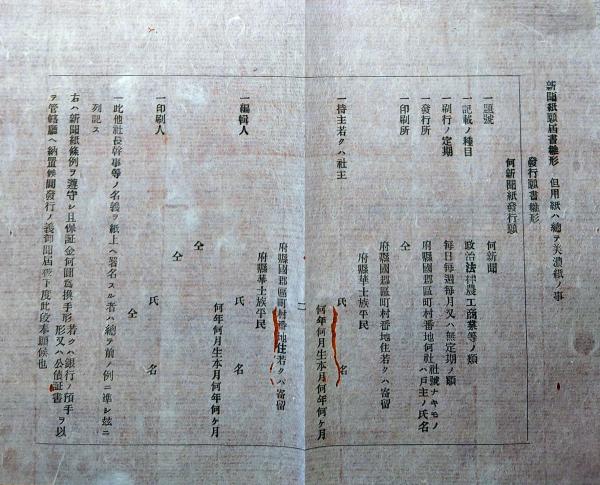 新聞紙願屆書雛形 但用紙ハ總テ美濃紙ノ事
發行願書雛形
何新聞紙發行願
一題號 何新聞
一記載ノ種目 政治法律農工商業等ノ類
一刷行ノ定期 每日每週每月又ハ無定期ノ類
一發行所 府縣國郡區町村番地何社ハ社號ナキモノハ戸主ノ氏名
一印刷所 仝
一持主若クハ社主 府縣國郡區町村番地住若クハ寄留
府縣華士族平民
氏名
何年何月生本月何年何ケ月
一編輯人 府縣國郡區町村番地住若クハ寄留
府縣華士族平民
氏名
何年何月生本月何年何ケ月
一印刷人 仝
仝 氏名
一此他社長幹事等ノ名義ヲ紙上ヘ署名スル者ハ總テ前ノ例ニ準シ玆ニ
列記ス
右ハ新聞紙條例ヲ遵守シ且保証金何圓爲換手形若クハ銀行ノ預手形又ハ公債証書ヲ以
テ管轄廳ヘ納置候間發行ノ義御聞屆被下度此段奉願候也